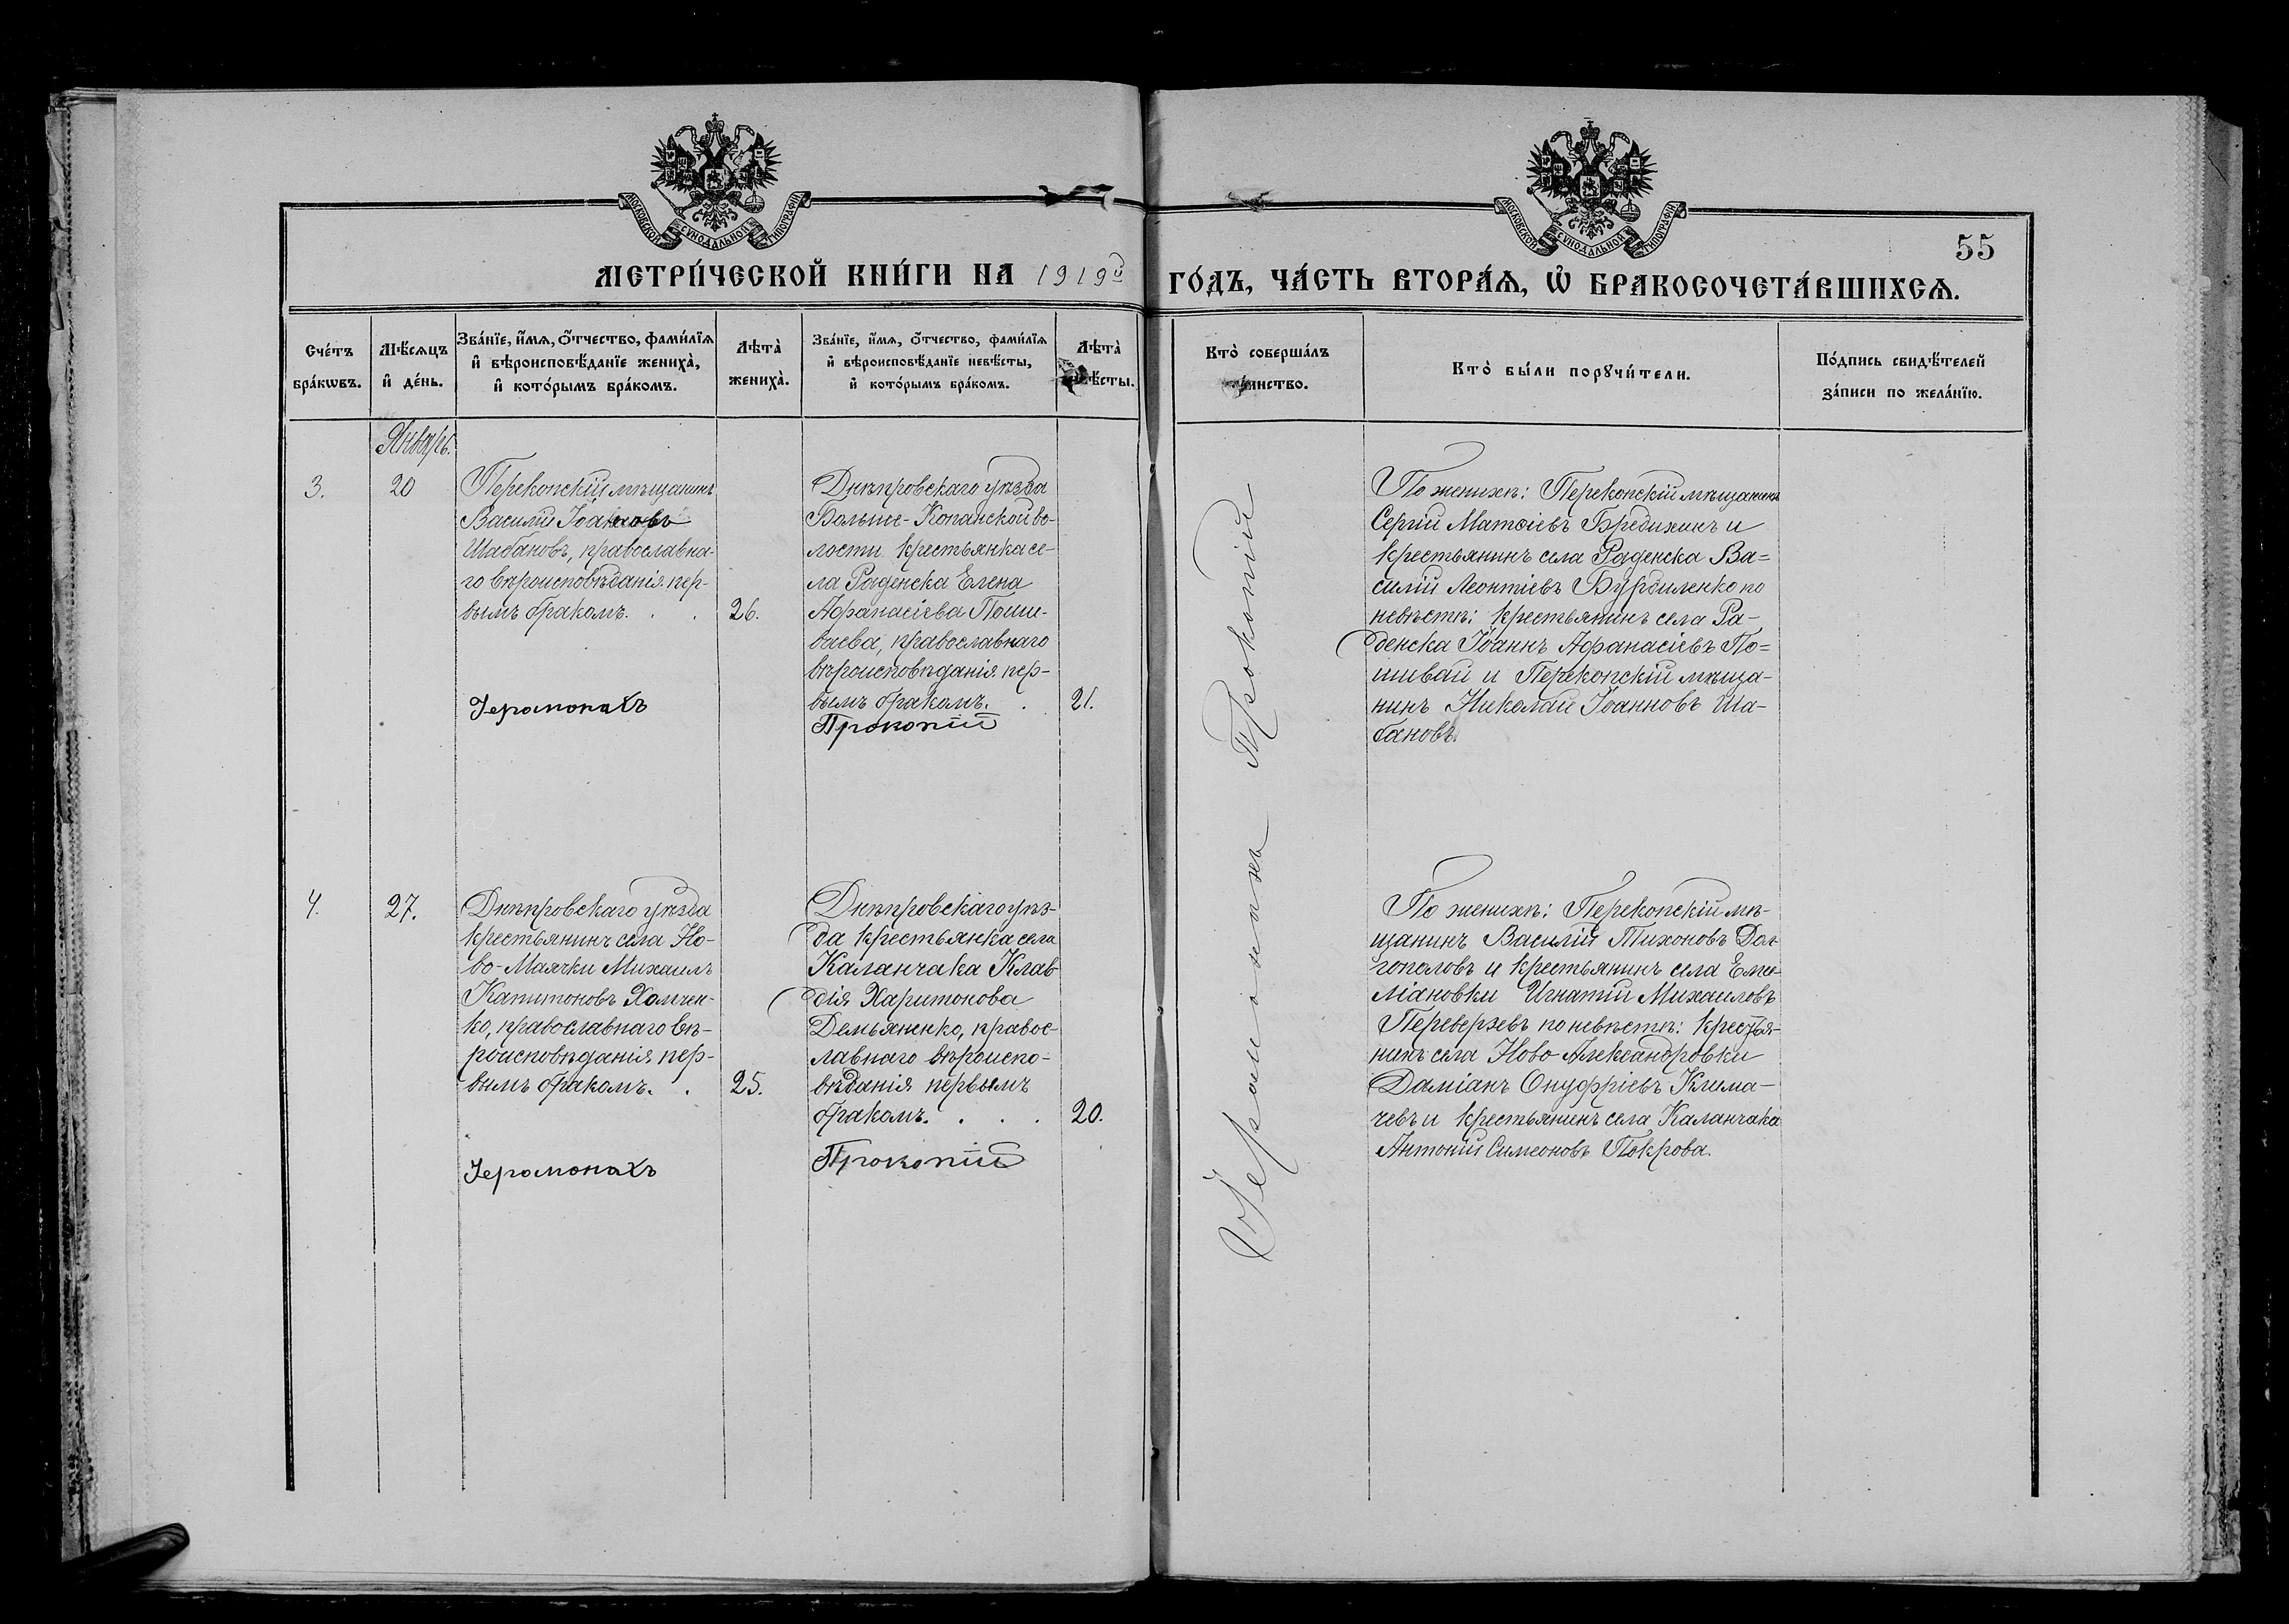 МОСКОВСКОЙ СѴНОДАЛЬНОЙ ТИПОГРАФІИ
МОСКОВСКОЙ СѴНОДАЛЬНОЙ ТИПОГРАФІИ
55
МЕТРИ́ЧЕСКОЙ КНИ́ГИ НА 1919й ГО́ДЪ, ЧА́СТЬ ВТОРА́Ѧ, Ѡ БРАКОСОЧЕТА́ВШИХСѦ.
Сче́тъ
бра́кѡвъ.
Мѣ́сѧцъ
и де́нь.
Зва́нїе, и́мѧ, ѻ́тчество, фами́лїѧ
и вѣроисповѣ́данїе жениха̀,
и кото́рымъ бра́комъ.
Лѣта̀
жениха̀.
Зва́нїе, и́мѧ, ѻ́тчество, фами́лїѧ
и вѣроисповѣ́данїе невѣ́сты,
и кото́рымъ бра́комъ.
Лѣта̀
невѣ́сты.
Кто̀ соверша́лъ
та́инство.
Кто̀ бы́ли порꙋчи́тели.
По́дпись свидѣ́телей
за́писи по жела́нїю.
Январь.
3.
20
Перекопскій мѣщанинъ
Василій Іоанновъ
Шабановъ, православна-
го вѣроисповѣданія. пер-
вымъ бракомъ. . .
26.
Іеромонахъ
Днѣпровскаго уѣзда
Больше-Копанской во-
лости крестьянка се-
ла Раденска Елена
Афанасіева Поши-
ваева, православнаго
вѣроисповѣданія. пер-
вымъ бракомъ. .
21.
Прокопій
Іеромонахъ Прокопій
По женихѣ: Перекопскій мѣщанинъ
Сергій Матѳіевъ Бредихинъ и
крестьянинъ села Раденска Ва=
силій Леонтіевъ Бурдиленко по
невѣстѣ: крестьянинъ села Ра-
денска Іоаннъ Афанасіевъ По=
шивай и Перекопскій мѣща-
нинъ Николай Іоанновъ Ша-
бановъ.
4.
27.
Днѣпровскаго уѣзда
крестьянинъ села Но-
во-Маячки Михаилъ
Капитоновъ Хомчен-
ко, православнаго вѣ-
роисповѣданія пер-
вымъ бракомъ. .
25.
Іеромонахъ
Днѣпровскаго уѣз-
да крестьянка села
Каланчака Клав-
дія Харитонова
Демьяненко, правос-
лавнаго вѣроиспо-
вѣданія первымъ
бракомъ. . . .
20.
Прокопій
По женихѣ: Перекопскій мѣ-
щанинъ Василій Тихоновъ Дол-
гополовъ и крестьянинъ села Еме-
ліановки Игнатій Михаиловъ
Переверзевъ по невѣстѣ: крестья-
нинъ села Ново Александровки
Даміанъ Онуфріевъ Клима-
чевъ и крестьянинъ села Каланчака
Антоній Симеоновъ Покрова.